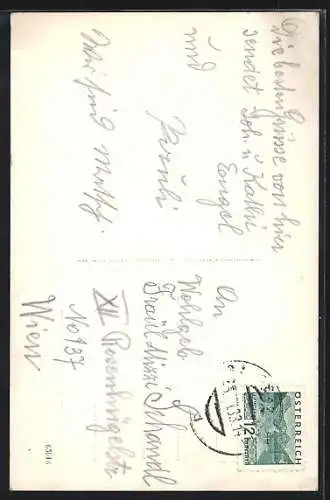 Die besten Grüsse von hier
sendet Joh. u. Kathi
Engel
und
Wir sind
An
Wohlgeb.
Fräul. Mizzi Schandl
XII Rosenhügelstr.
No 137
Wien
ÖSTERREICH
12